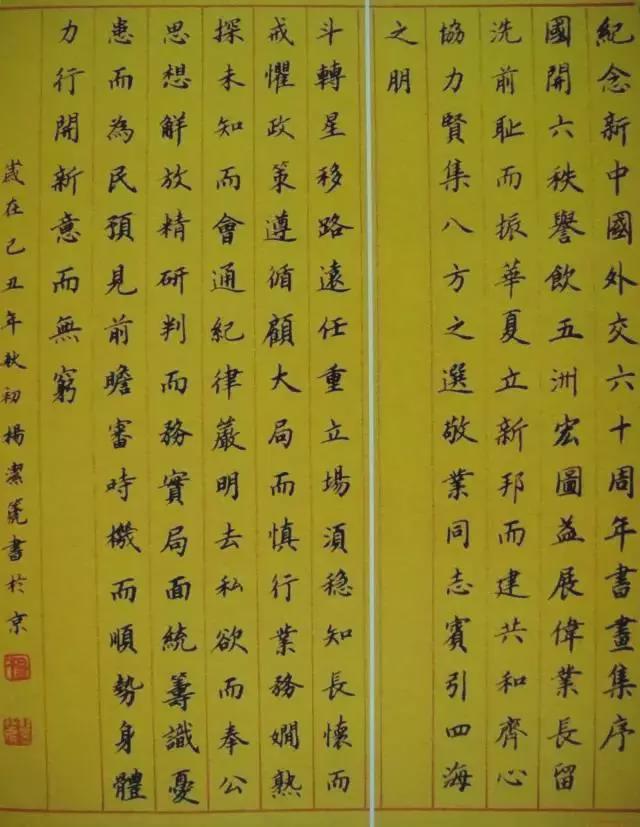 紀念新中國外交六十周年書畫集序
國開六秩譽飲五洲宏圖益展偉業長留
洗前耻而振華夏立新邦而建共和齊心
協力賢集八方之選敬業同志賓引四海
之朋
斗轉星移路遠任重立場須穩知長懷而
戒懼政策遵循顧大局而慎行業務嫻熟
探未知而會通紀律嚴明去私欲而奉公
思想解放精研判而務實局面統籌識憂
患而為民預見前瞻審時機而順勢身體
力行開新意而無窮
歲在己丑年秋初楊潔篪書於京